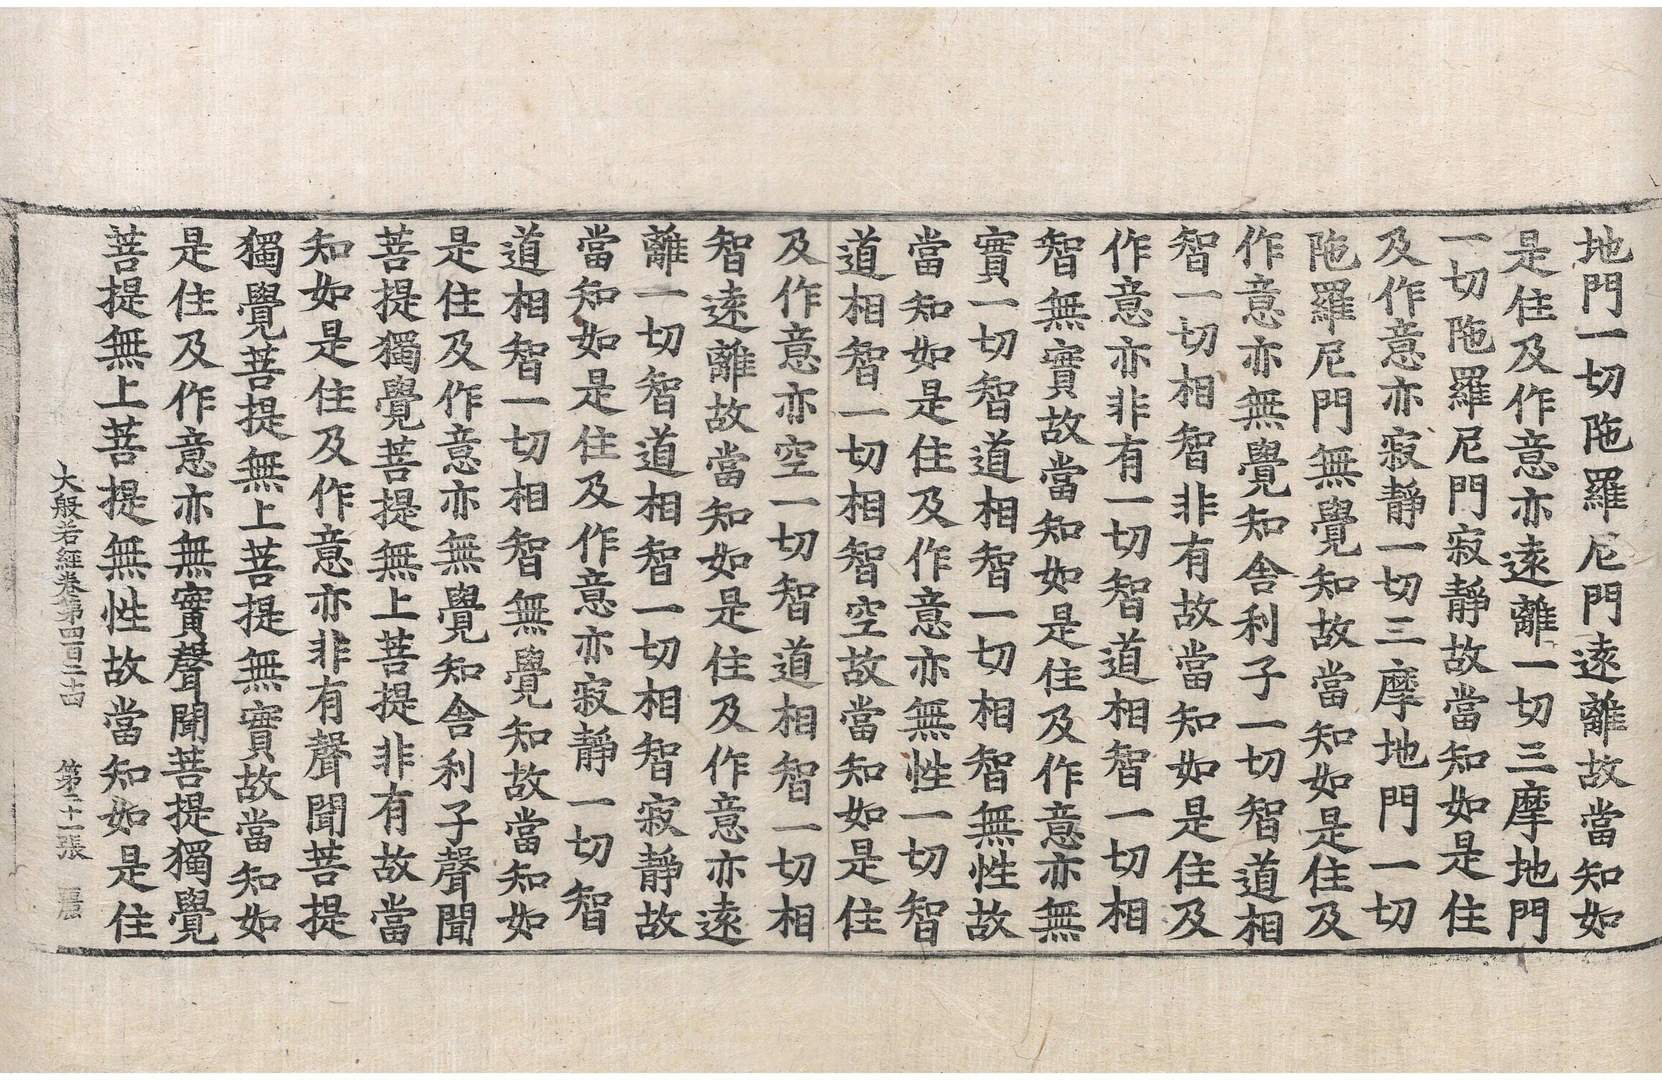 地門一切陁羅尼門遠離故當知如
是住及作意亦遠離一切三摩地門
一切陁羅尼門寂靜故當知如是住
及作意亦寂靜一切三摩地門一切
陁羅尼門無覺知故當知如是住及
作意亦無覺知舍利子一切智道相
智一切相智非有故當知如是住及
作意亦非有一切智道相智一切相
智無實故當知如是住及作意亦無
實一切智道相智一切相智無性故
當知如是住及作意亦無性一切智
道相智一切相智空故當知如是住
及作意亦空一切智道相智一切相
智遠離故當知如是住及作意亦遠
離一切智道相智一切相智寂靜故
當知如是住及作意亦寂靜一切智
道相智一切相智無覺知故當知如
是住及作意亦無覺知舍利子聲聞
菩提獨覺菩提無上菩提非有故當
知如是住及作意亦非有聲聞菩提
獨覺菩提無上菩提無實故當知如
是住及作意亦無實聲聞菩提獨覺
菩提無上菩提無性故當知如是住
大般若經卷第四百二十四 第二十一張 麗